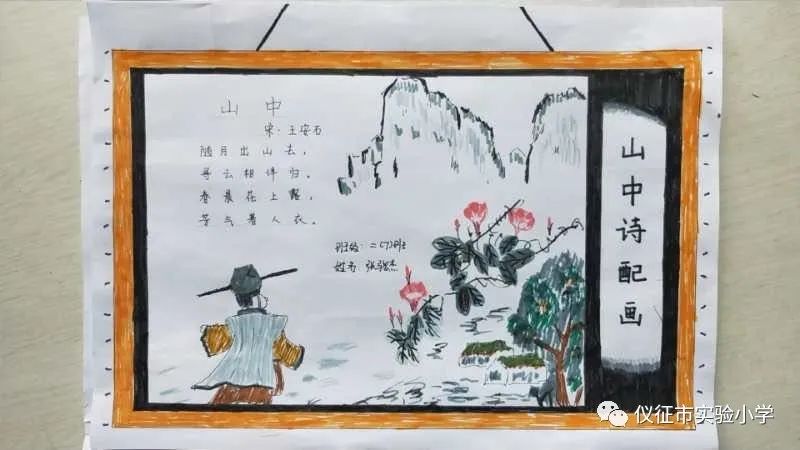 山中
宋·王安石
随月出山去，
寻云相伴归。
春晨花上露，
芳气着人衣。
班级：二（7）班
姓名：
山中诗配画
仪征市实验小学